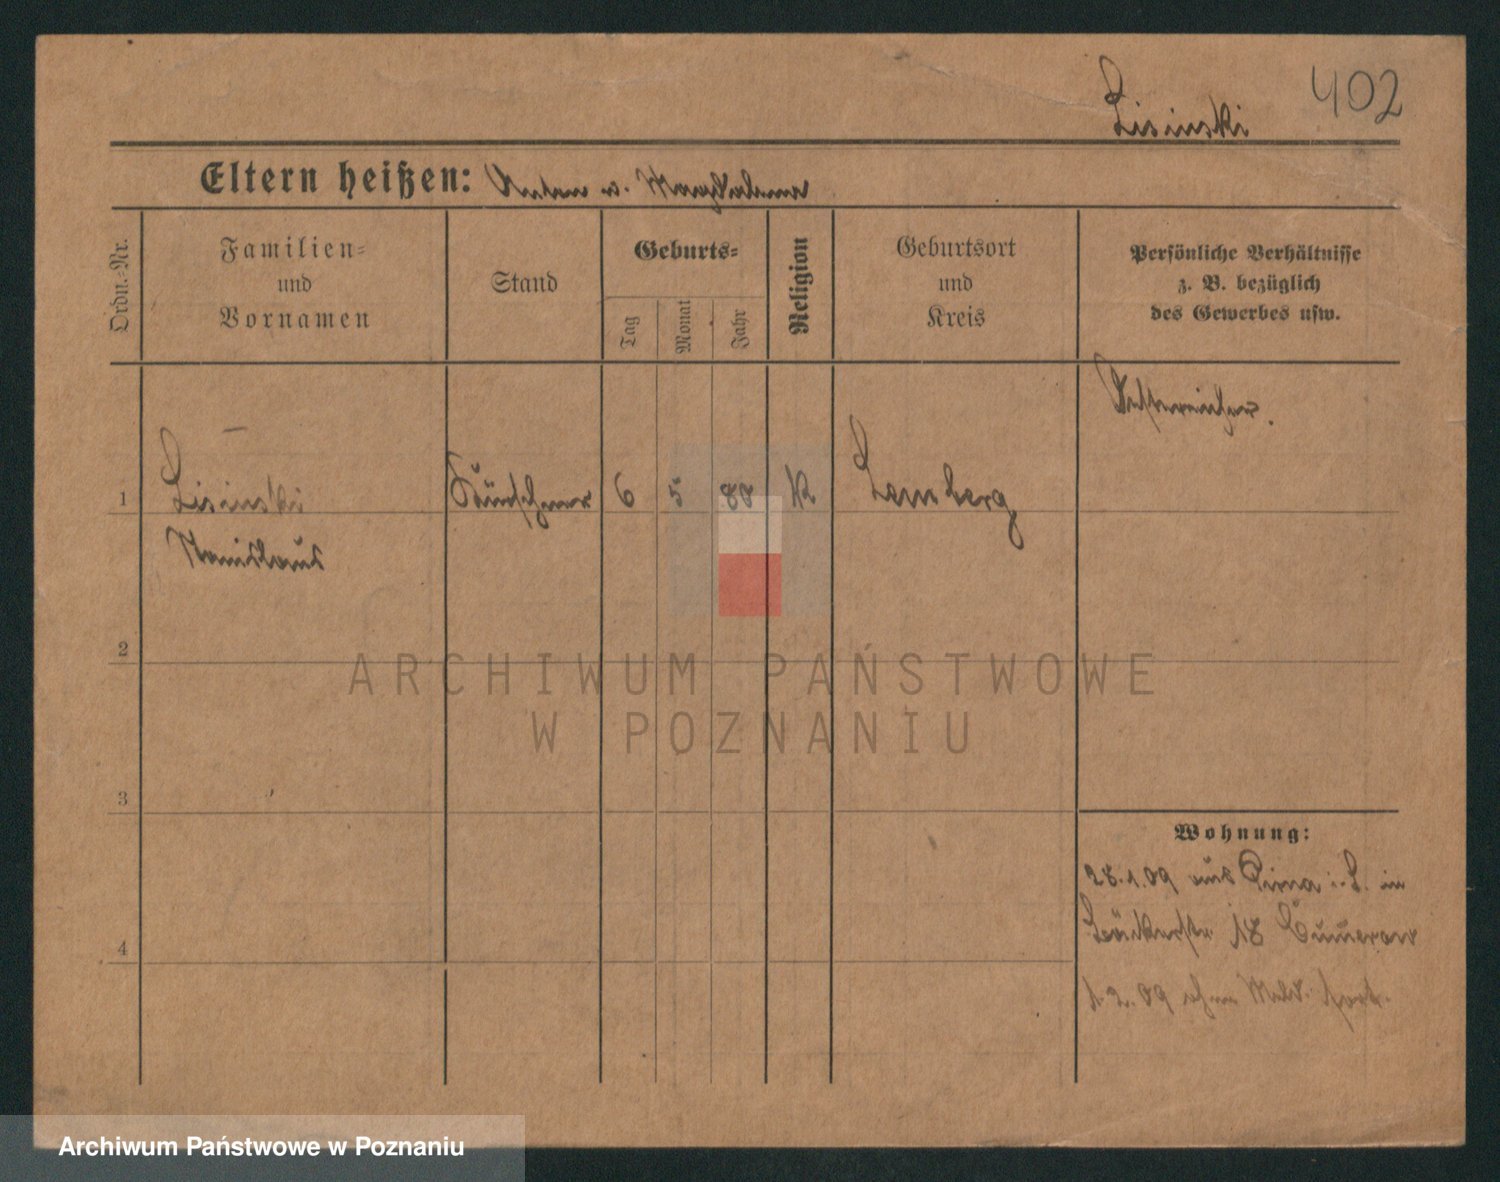 Lisinski 402
Eltern heißen: Anton u. Magdalena
Ordn.-Nr.
Familien-
und
Vornamen
Stand
Geburts-
Tag
Monat
Jahr
Religion
Geburtsort
und
Kreis
Persönliche Verhältnisse
z. B. bezüglich
des Gewerbes usw.
Oesterreicher.
1 Lisinski Kürschner 6 5 88 K Lemberg
Stanislaus
2
ARCHIWUM PAŃSTWOWE
W POZNANIU
3
Wohnung:
28.1.09 aus Pirna i. S. in
18
4
1.2.09 ohne Meld. fort.
Archiwum Państwowe w Poznaniu